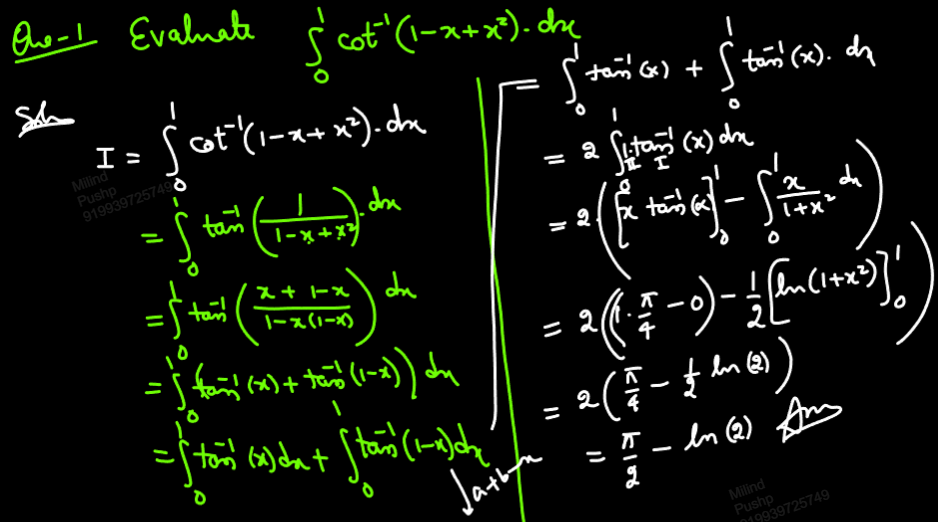 Que-1 Evaluate ∫₀¹ cot⁻¹(1-x+x²).dx
Soln
I = ∫₀¹ cot⁻¹(1-x+x²).dx
= ∫₀¹ tan⁻¹(1/(1-x+x²)).dx
= ∫₀¹ tan⁻¹((x+1-x)/(1-x(1-x))) dx
= ∫₀¹ (tan⁻¹(x) + tan⁻¹(1-x)) dx
= ∫₀¹ tan⁻¹(x)dx + ∫₀¹ tan⁻¹(1-x)dx
↓a+b-x
= ∫₀¹ tan⁻¹(x) + ∫₀¹ tan⁻¹(x).dx
= 2 ∫₀¹ 1.tan⁻¹(x) dx
II I
= 2.([x tan⁻¹(x)]₀¹ - ∫₀¹ x/(1+x²) dx)
= 2((1.π/4 - 0) - 1/2 [ln(1+x²)]₀¹)
= 2(π/4 - 1/2 ln(2))
= π/2 - ln(2) Ans
Milind
Pushp
919939725749
Milind
Pushp
919939725749